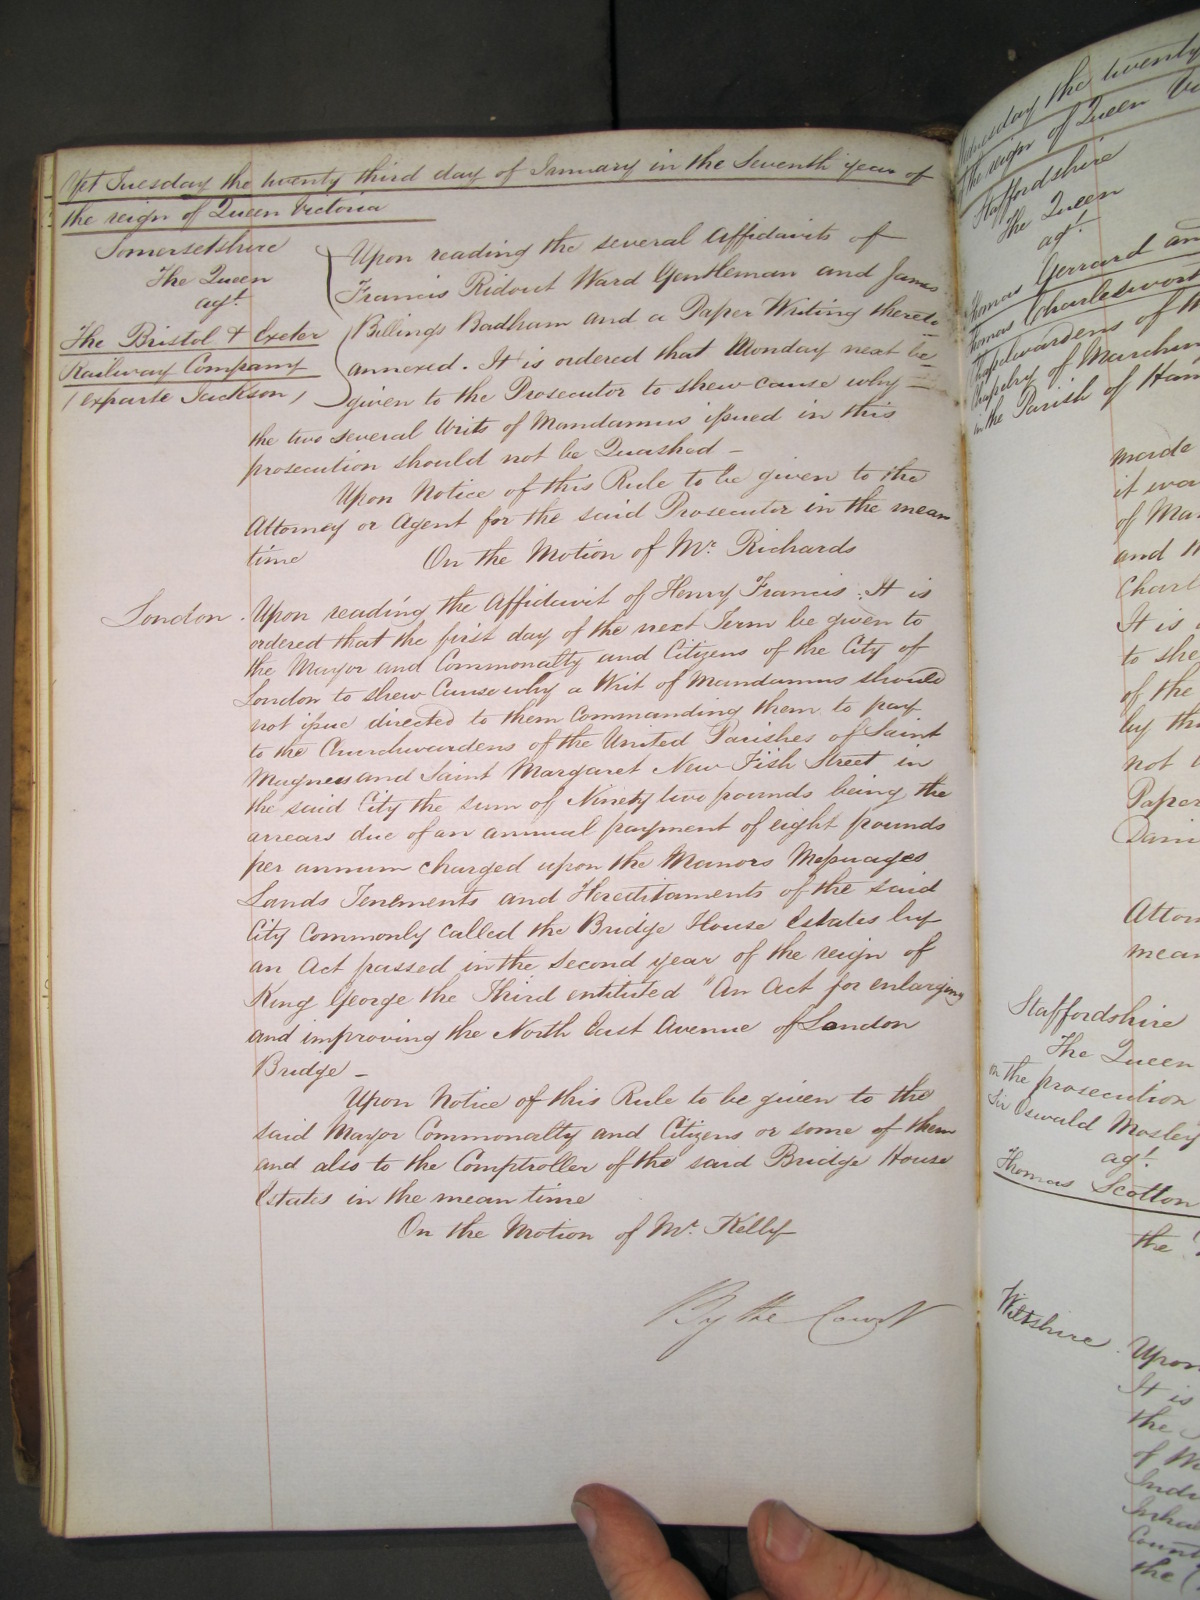 Yet Tuesday the twenty third day of January in the Seventh year of
the reign of Queen Victoria
Somersetshire
The Queen
agt.
The Bristol & Exeter
Railway Company
(exparte Jackson)
Upon reading the several Affidavits of
Francis Ridout Ward Gentleman and James
Billings Badham and a Paper Writing thereto
annexed. It is ordered that Monday next be
given to the Prosecutor to shew cause why
the two several Writs of Mandamus issued in this
prosecution should not be Quashed –
Upon Notice of this Rule to be given to the
Attorney or Agent for the said Prosecutor in the mean
time On the Motion of Mr. Richards
London. Upon reading the Affidavit of Henry Francis. It is
ordered that the first day of the next Term be given to
the Mayor and Commonalty and Citizens of the City of
London to shew Cause why a Writ of Mandamus should
not issue directed to them Commanding them to pay
to the Churchwardens of the United Parishes of Saint
Magness and Saint Margaret New Fish Street in
the said City the sum of Ninety two pounds being the
arrears due of an annual payment of eight pounds
per annum charged upon the Manors Messuages
Lands Tenements and Hereditaments of the said
City Commonly called the Bridge House Estates by
an Act passed in the second year of the reign of
King George the Third entituled "An Act for enlarging
and improving the North East Avenue of London
Bridge –
Upon Notice of this Rule to be given to the
said Mayor Commonalty and Citizens or some of them
and also to the Comptroller of the said Bridge House
Estates in the mean time
On the Motion of Mr. Kelly
By the Court
the twenty
the reign of Queen
Staffordshire
The Queen
agt.
Thomas Gerrard
Thomas Charlesworth
Chapelwardens of
Chapelry of
in the Parish of
made
it
of
and
It is
to
of the
by
not
Paper
Staffordshire
The Queen
on the prosecution
Sir Oswald Mosley
agt.
Thomas Scotton
the
Wiltshire. Upon
It is
the
of
the